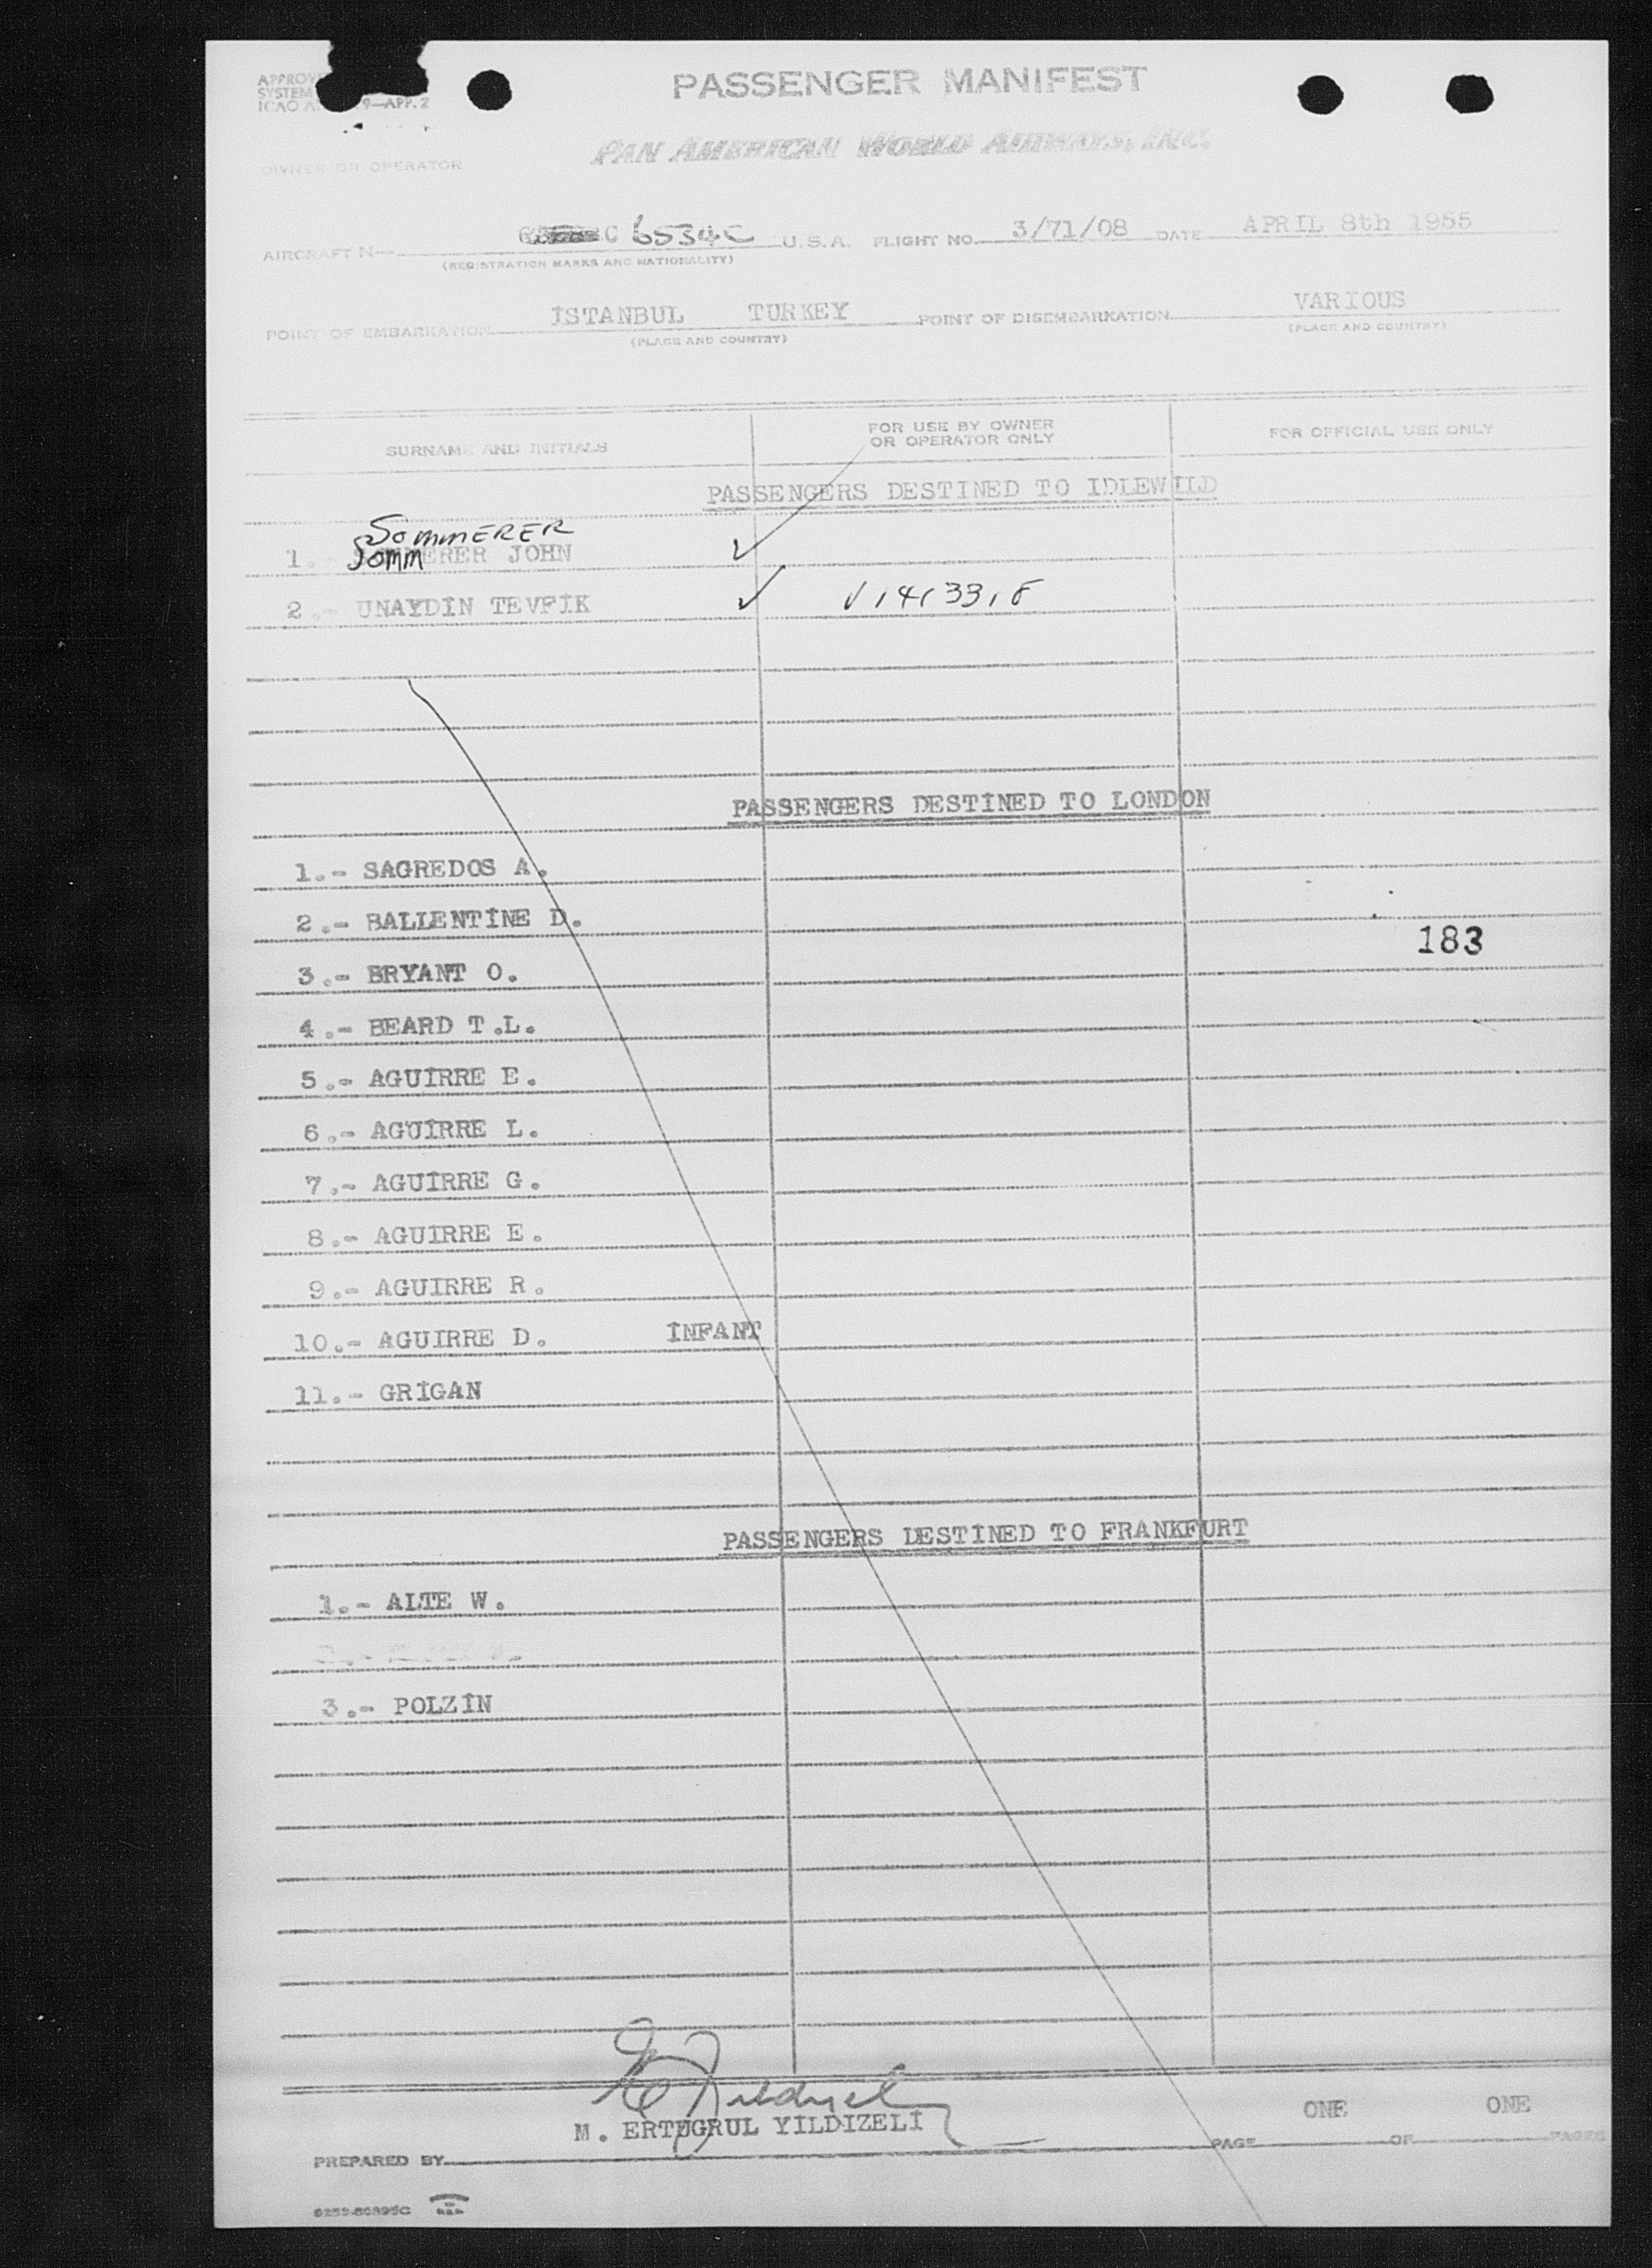 PASSENGER MANIFEST
9—APP. 2
PAN AMERICAN WORLD AIRWAYS, INC.
OWNER OR OPERATOR
AIRCRAFT N— C 6534C U.S.A. FLIGHT NO. 3/71/08 DATE APRIL 8th 1955
(REGISTRATION MARKS AND NATIONALITY)
POINT OF EMBARKATION İSTANBUL TURKEY POINT OF DISEMBARKATION VARIOUS
(PLACE AND COUNTRY) (PLACE AND COUNTRY)
SURNAME AND INITIALS FOR USE BY OWNER OR OPERATOR ONLY FOR OFFICIAL USE ONLY
PASSENGERS DESTINED TO IDLEWILD
SOMMERER
1.- SOMMERER JOHN
2.- UNAYDİN TEVFİK
PASSENGERS DESTİNED TO LONDON
1.- SAGREDOS A.
2.- BALLENTİNE D.
183
3.- BRYANT O.
4.- BEARD T.L.
5.- AGUİRRE E.
6.- AGUİRRE L.
7.- AGUİRRE G.
8.- AGUIRRE E.
9.- AGUIRRE R.
10.- AGUIRRE D. İNFANT
11.- GRİGAN
PASSENGERS DESTİNED TO FRANKFURT
1.- ALTE W.
3.- POLZİN
M. ERTUGRUL YİLDIZELİ
PREPARED BY PAGE ONE OF ONE PAGES